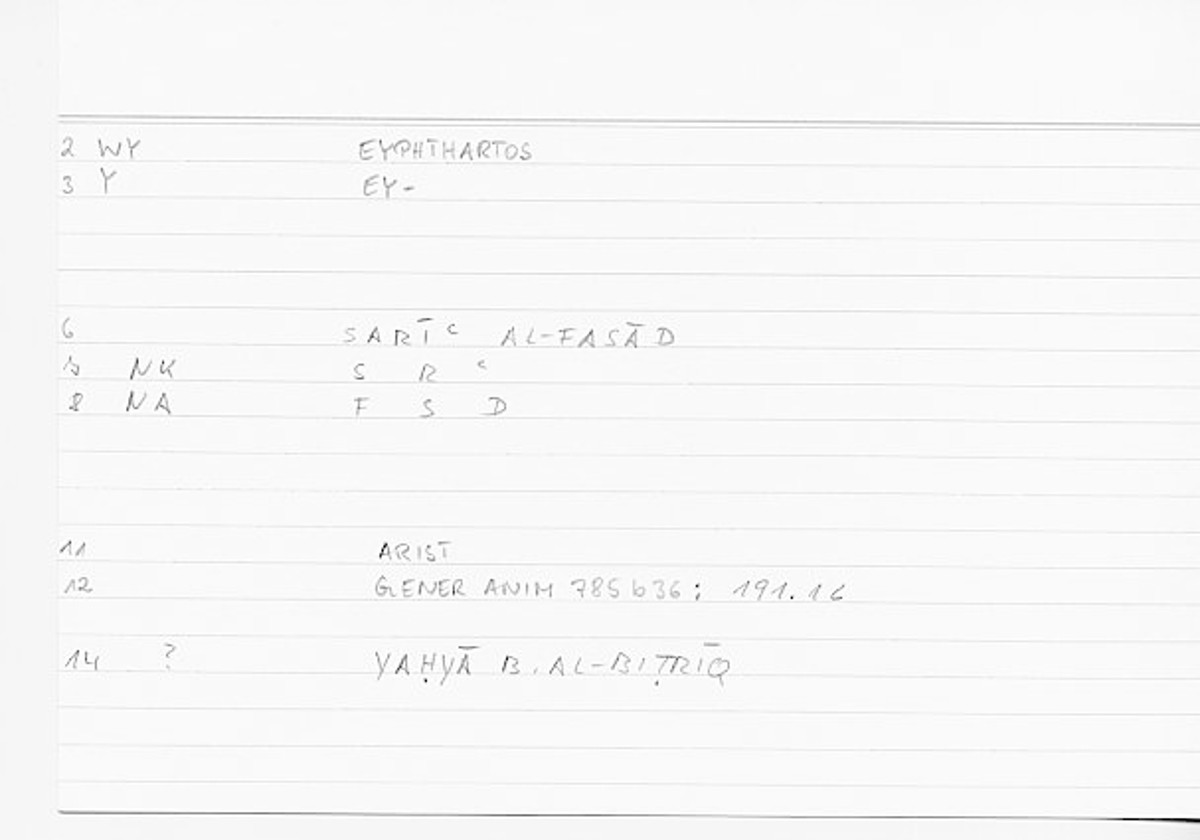 2 WY EYPHTHARTOS
3 Y EY-
6 SARĪʿ AL-FASĀD
7 NK S R ʿ
8 NA F S D
11 ARIST
12 GENER ANIM 785 b36; 191.16
14 ? YAḤYĀ B. AL-BIṬRĪQ